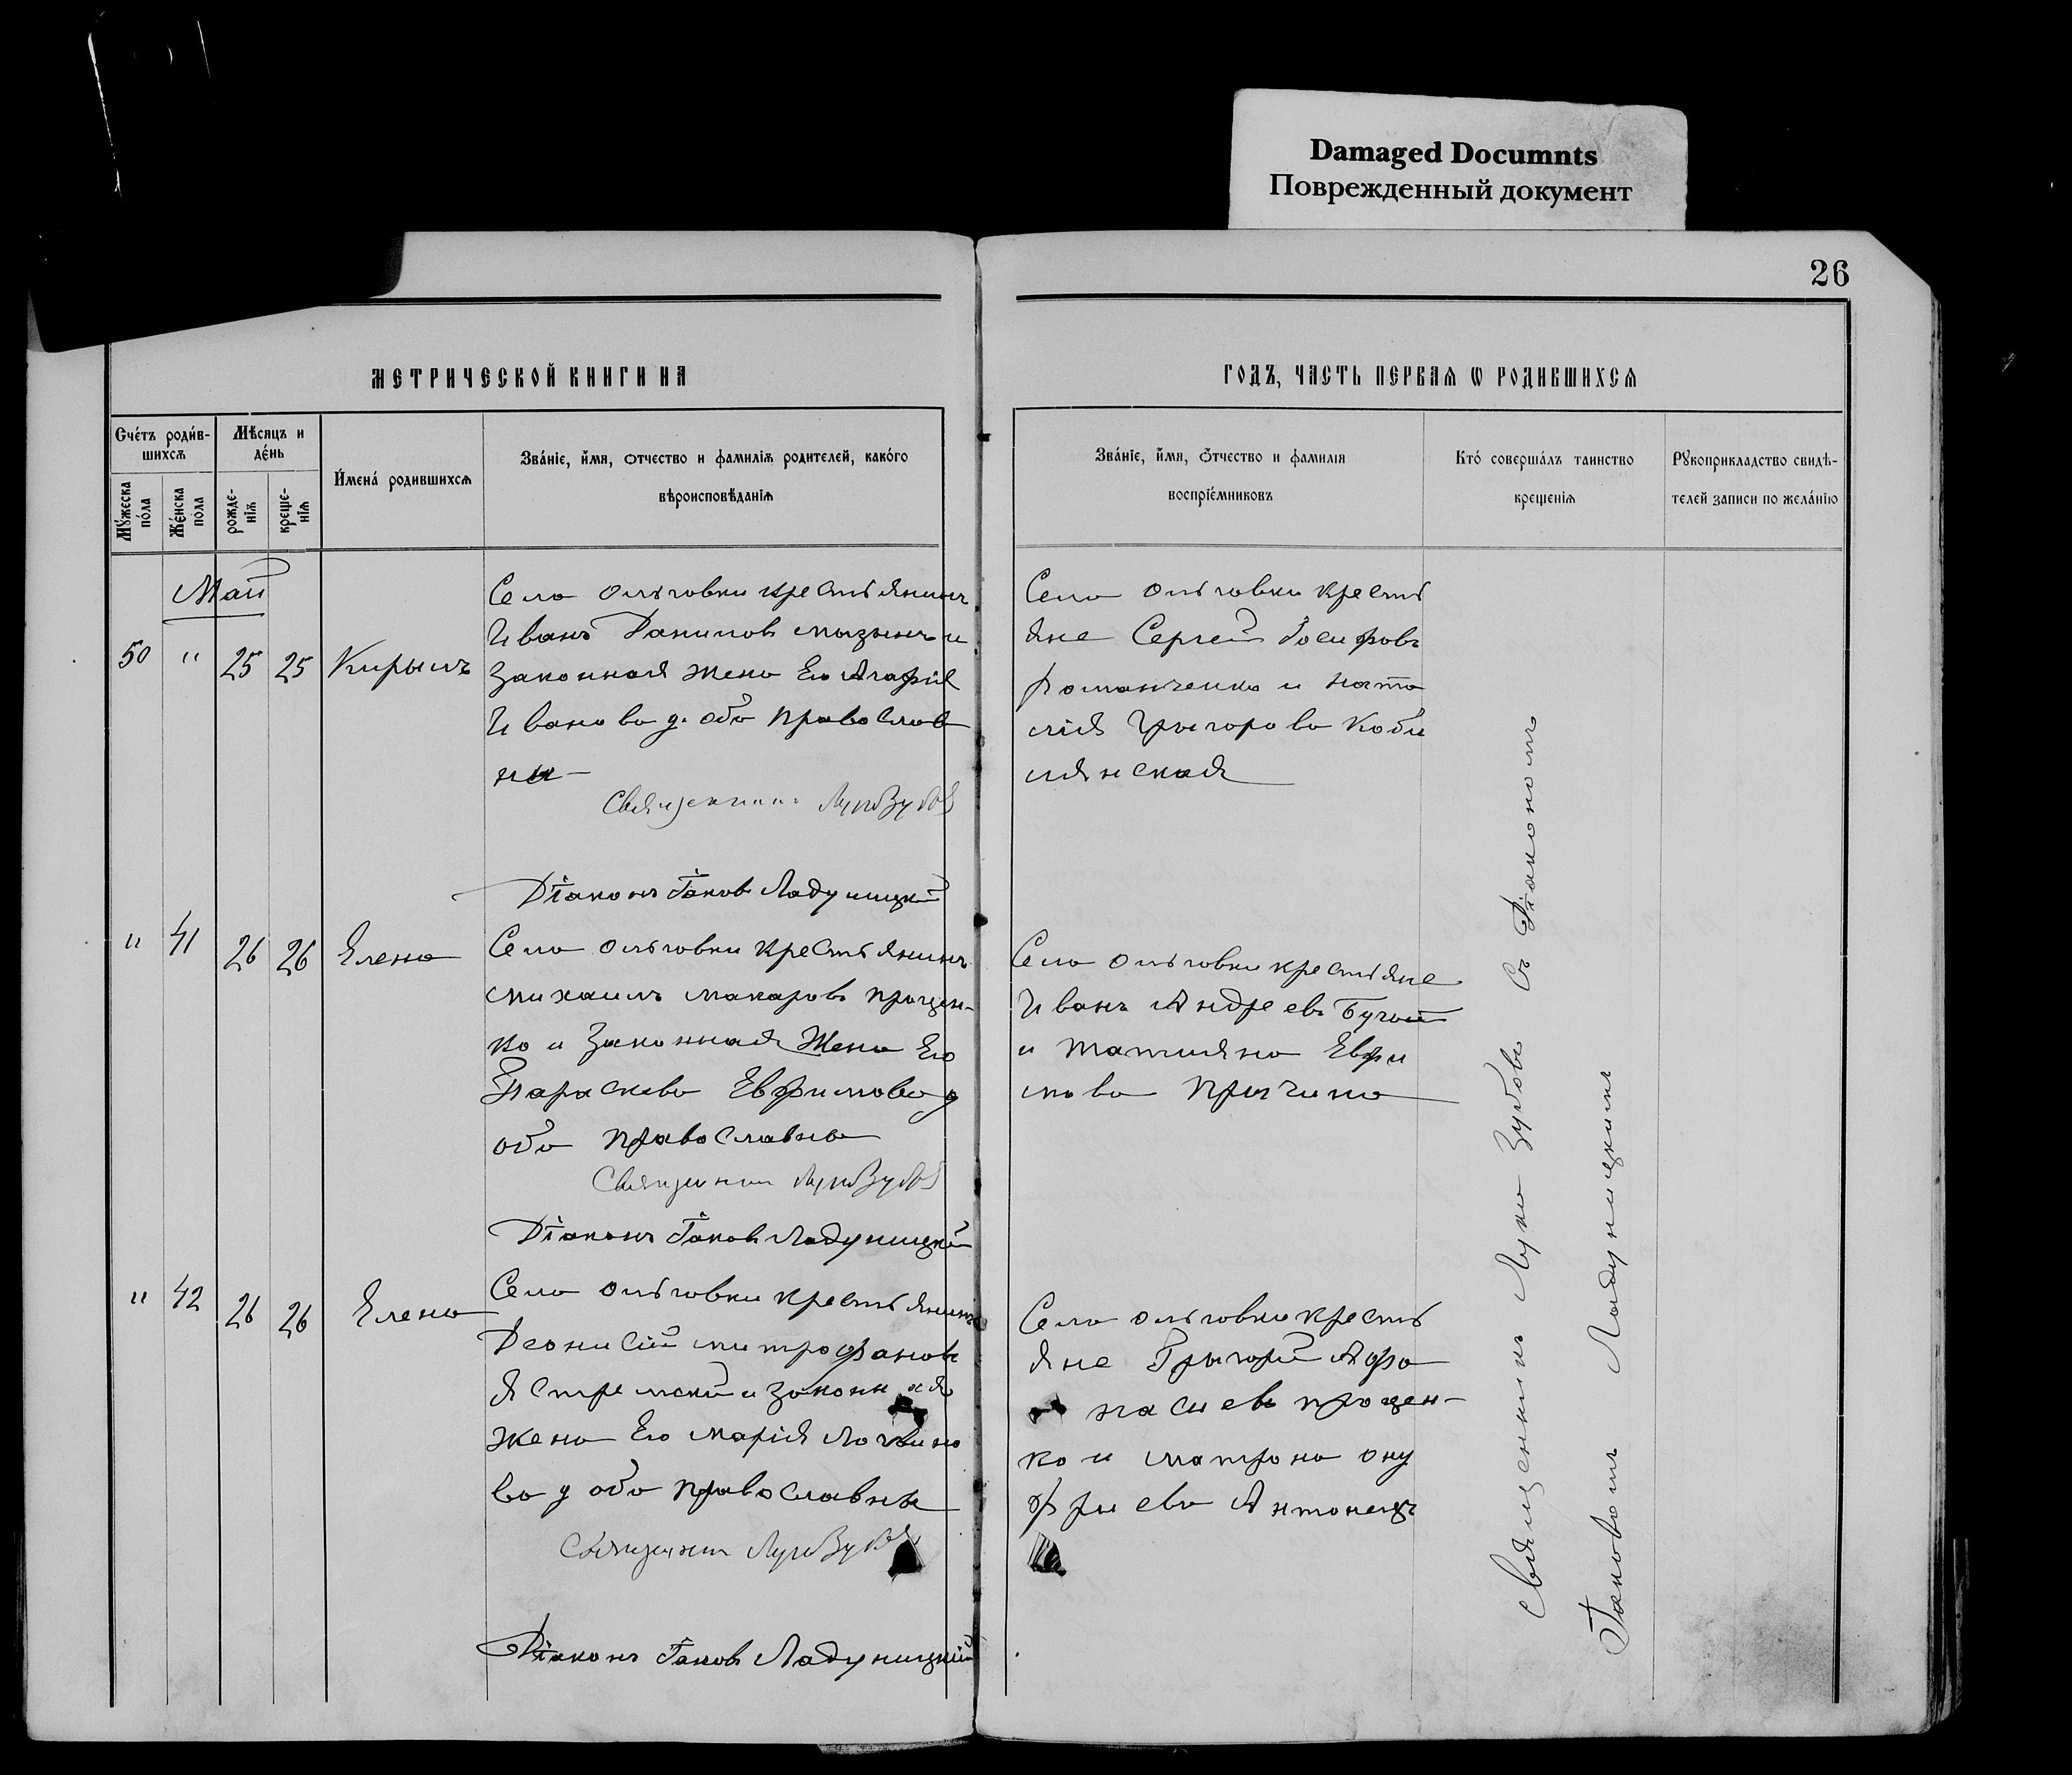 Damaged Documnts
Поврежденный документ
26
МЕТРИЧЕСКОЙ КНИГИ НА
ГОДЪ, ЧАСТЬ ПЕРВАЯ Ѡ РОДИВШИХСѦ
Сче́тъ роди́в-
шихсѧ
Му́жеска по́ла
Же́нска по́ла
Мѣсяцъ и
де́нь
рожде-
нїѧ
креще-
нїѧ
И҆мена́ родившихсѧ
Зва́нїе, и҆́мя, ѻтчество и фамилїѧ родителей, како́го
вѣроисповѣ́данїѧ
Зва́нїе, и҆́мя, ѻтчество и фамилїя
воспрїе́мниковъ
Кто́ соверша́лъ таинство
крещенїѧ
Рꙋкоприкладство свидѣ-
телей записи по жела́нїю
Май
50 " 25 25 Кирылъ
Села Ольговки крестьянинъ
Иванъ Данилов и
Законная жена Его Агафія
Иванова д. оба православ
ны
Священникъ Лука Зубовъ
Діаконъ Іаковъ Ладуницкій
Села Ольговки кресть
яне Сергей Іосифовъ
Романченко и Ната
лія Григорова Коби
лянская
" 41 26 26 Елена
Села Ольговки крестьянинъ
Михаилъ Макаровъ Процен-
ко и Законная Жена Его
Параскева Евфимова д
оба православны
Священникъ Лука Зубовъ
Діаконъ Іаковъ Ладуницкій
Села Ольговки крестьяне
Иванъ Андреевъ
и Татияна Евфи
мова
" 42 26 26 Елена
Села Ольговки крестьянинъ
Деонисій Митрофановъ
Ястремскій и законная
жена Его Марія Логвино
ва д оба православны
Священникъ Лука Зубовъ
Діаконъ Іаковъ Ладуницкій
Села Ольговки кресть
яне Григорій Афа
насиевъ Процен-
ко и Матрона Ону
фриева Антонецъ
Священникъ Лука Зубовъ Съ Діакономъ
Іаковомъ Ладуницкимъ